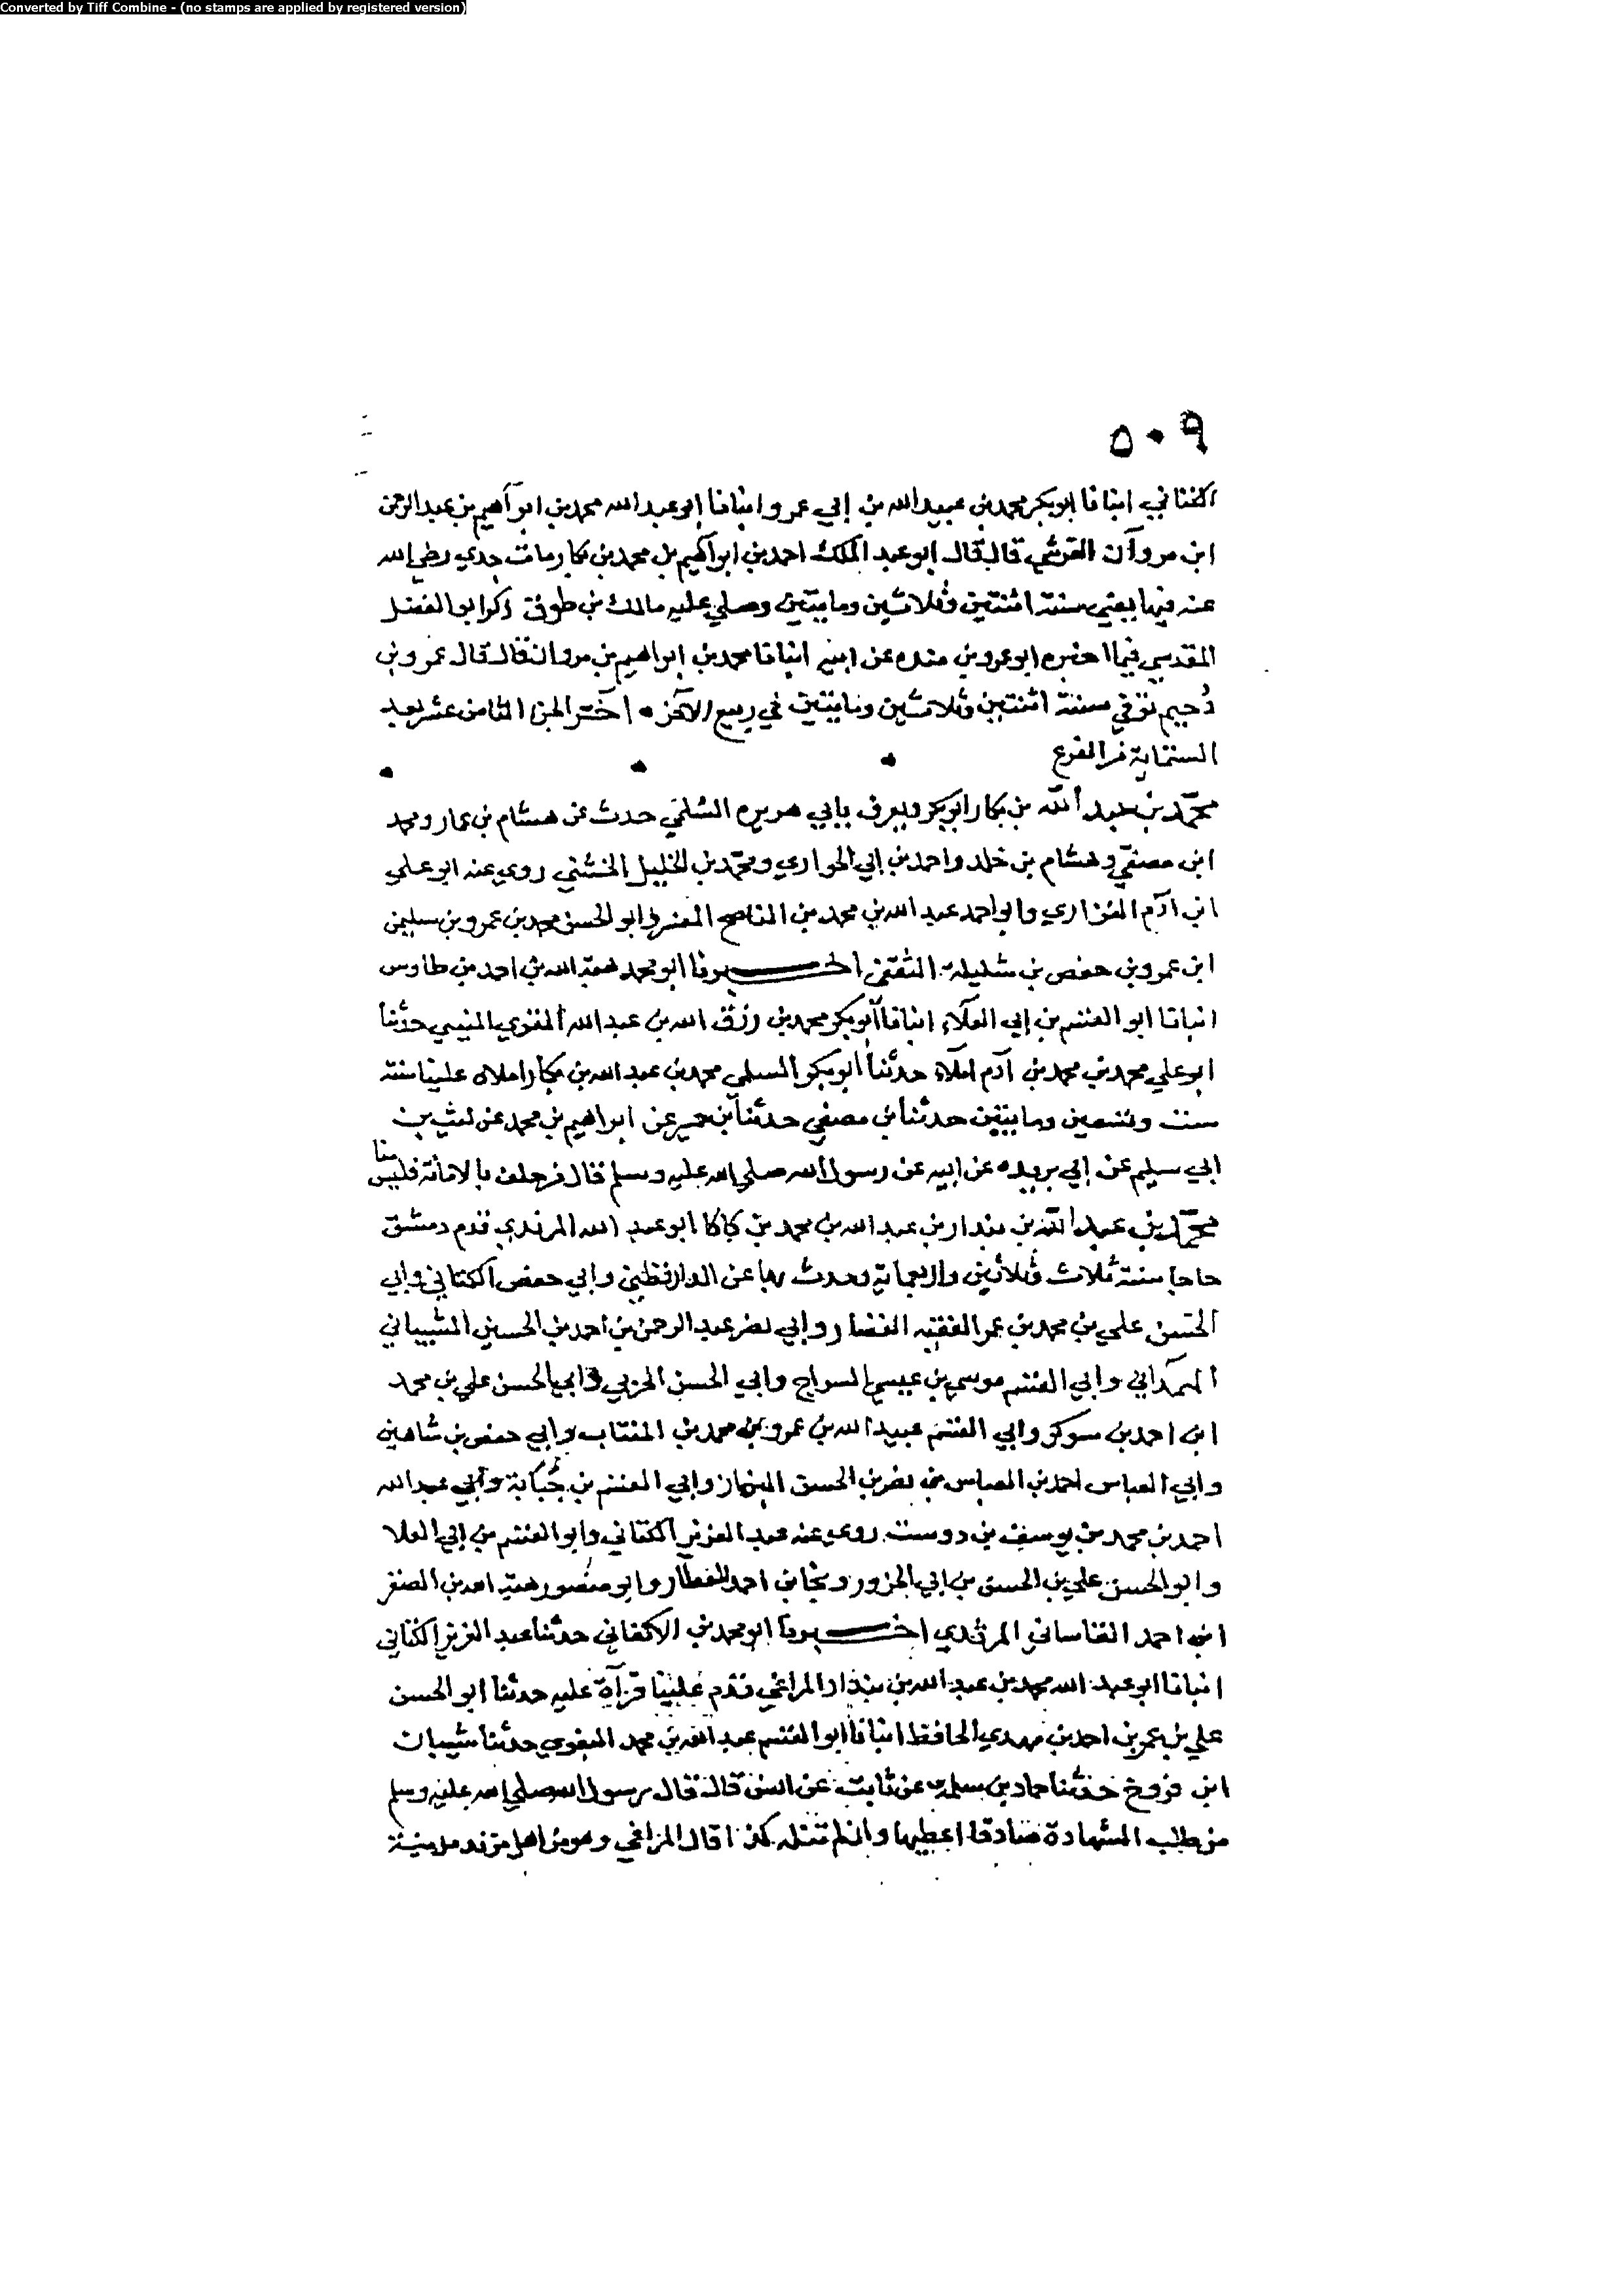 Converted by Tiff Combine - (no stamps are applied by registered version)
٥٠٩
الكتاني انبانا ابو بكر محمد بن عبيد الله بن ابي عمرو انبانا ابو عبد الله محمد بن ابراهيم بن عبد الرحمن
ابن مروان القرشي قال قال ابو عبد الملك احمد بن ابراهيم بن محمد بن بكار مات جدي رضي الله
عنه فيها يعني سنة اثنتين وثلاثين ومايتين وصلي عليه مالك بن طوق ذكر ابو الفضل
المقدسي فيما اخبره ابو عمرو بن منده عن ابيه انبانا محمد بن ابراهيم بن مروان قال قال عمرو بن
دُحيم توفي سنة اثنتين وثلاثين ومايتين في ربيع الاخر • آخر الجزء الثامن عشر بعد
الستماية من الفرع
محمّد بن عبد الله بن بكار ابو بكر ويعرف بابي هريره السُلمَي حدث عن هشام بن عمار ومحمد
ابن مصفّي وهشام بن خلد واحمد بن ابي الحواري ومحمّد بن الخليل الخشني روي عنه ابو علي
ابن آدم الفزاري وابو احمد عبد الله بن محمد بن الناصح المفسر وابو الحسن محمد بن عمرو بن سليمن
ابن عمرو بن حفص بن شليله الثقفي اخبرنا ابو محمد هبة الله بن احمد بن طاوس
انبانا ابو القسم بن ابي العلاء انبانا ابو بكر محمد بن رزق الله بن عبد الله المقري المنيني حدثنا
ابو علي محمد بن محمد بن آدم املاء حدثنا ابو بكر السلمي محمد بن عبد الله بن بكار املاه علينا سنة
ست وتسعين ومايتين حدثنا بن مصفي حدثنا بن حمير عن ابراهيم بن محمد عن ليث بن
ابي سليم عن ابي بريده عن ابيه عن رسول الله صلي الله عليه وسلم قال من حلف بالامانة فليس منا
محمّد بن عبد الله بن بندار بن عبد الله بن محمد بن كاكا ابو عبد الله المرندي قدم دمشق
حاجا سنة ثلاث وثلاثين واربعماية وحدث بها عن الدارقطني وابي حفص الكتاني وابي
الحسن علي بن محمد بن عمر الفقيه القصار وابي نصر عبد الرحمن بن احمد بن الحسين الشيباني
الهمداني وابي القسم موسي بن عيسي السراج وابي الحسن الحربي وابي الحسن علي بن محمد
ابن احمد بن سوكر وابي القسم عبيد الله بن عمرو بن محمد بن المنتاب وابي حفص بن شاهين
وابي العباس احمد بن العباس بن نصر بن الحسن وابي القسم بن حُبَابة وابي عبد الله
احمد بن محمد بن يوسف بن دوست روي عنه عبد العزيز الكتاني وابو القسم بن ابي العلا
وابو الحسن علي بن الحسن بن ابي الحزور ونجا بن احمد العطار وابو منصور هبة الله بن الصقر
ابن احمد المرندي اخبرنا ابو محمد بن الاكفاني حدثنا عبد العزيز الكتاني
انبانا ابو عبد الله محمد بن عبد الله بن بندار المراغي قدم علينا قرآة عليه حدثنا ابو الحسن
علي بن عمر بن احمد بن مهدي الحافظ انبانا ابو القسم عبد الله بن محمد البغوي حدثنا شيبان
ابن فروخ حدثنا حماد بن سلمة عن ثابت عن انس قال قال رسول الله صلي الله عليه وسلم
من طلب الشهادة صادقا اعطيها وان لم تنله كذا قال المراغي وهو من اهل مرند مدينة